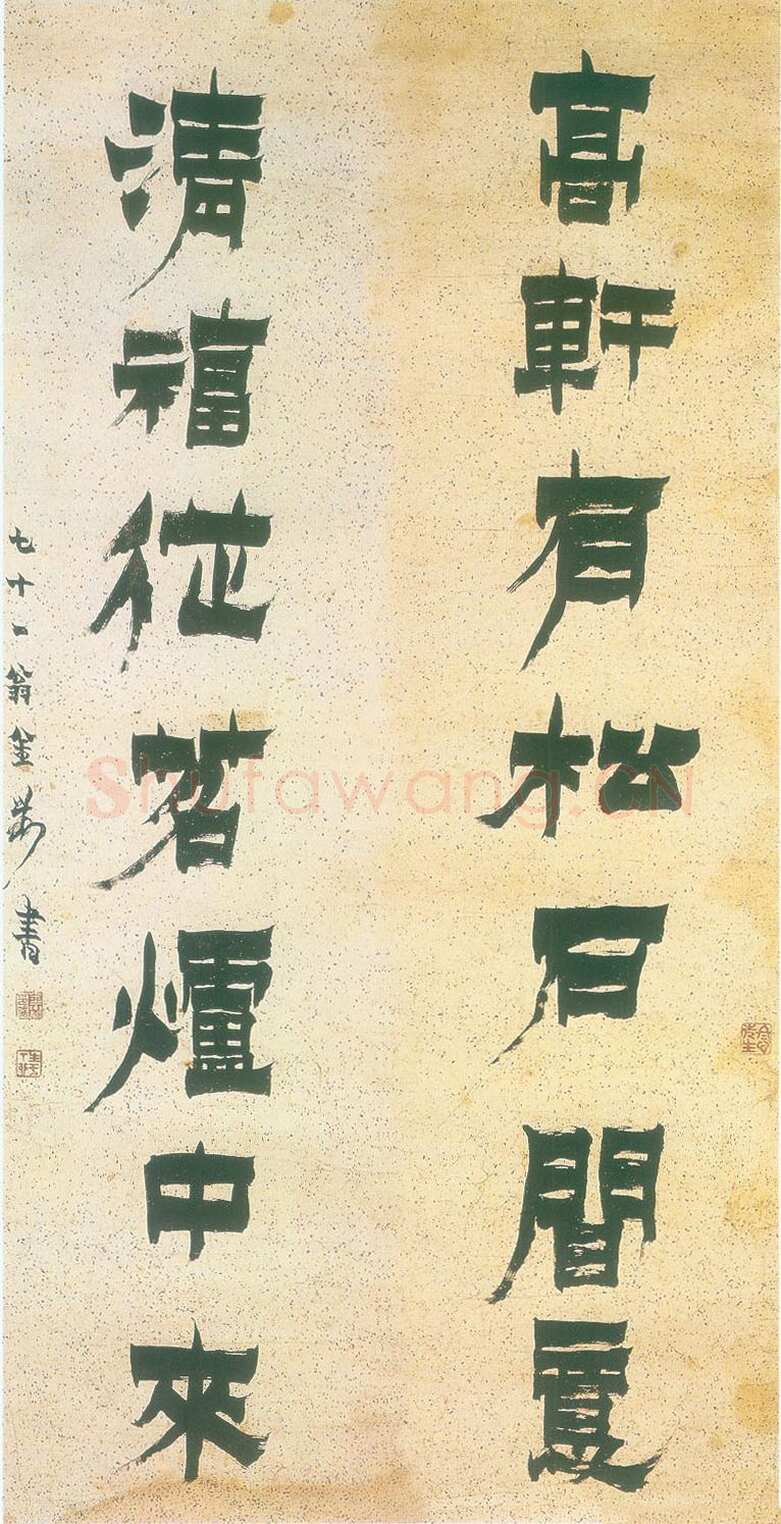 高軒有松石間夏
清福從茗爐中來
七十翁金農書
Shufawang.CN